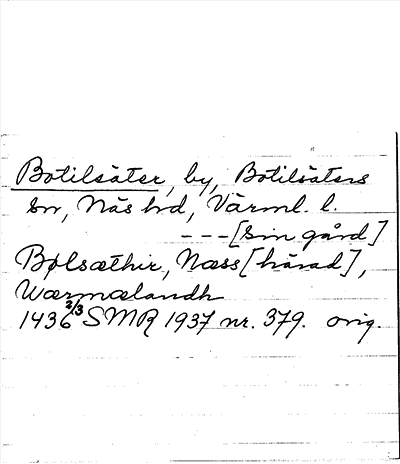 Botilsäter, by, Botilsäters
sn, Näs hd, Värml. l.
---[sin gård]
Bølsæthir, Næss [härad],
Wærmælandh
1436 2/3 SMR 1937 nr. 379. orig.